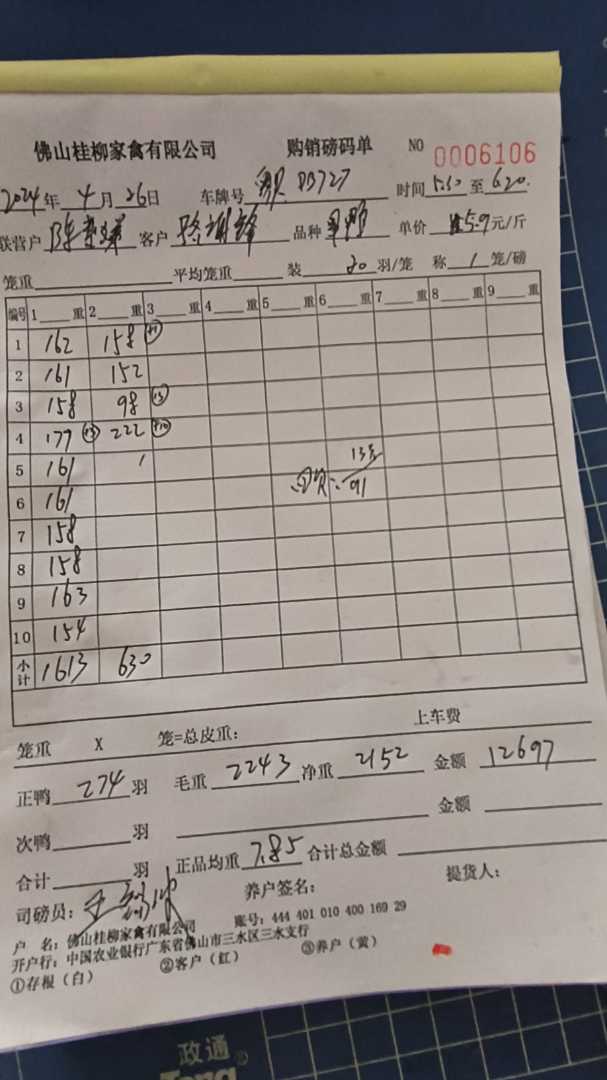 佛山桂柳家禽有限公司 购销磅码单 NO 0006106
2024年 4月 26日 车牌号 DB727 时间 5:50 至 6:20.
联营户 客户 品种 单价 5.9元/斤
笼重 平均笼重 装 20 羽/笼 称 1 笼/磅
编号 1 重 2 重 3 重 4 重 5 重 6 重 7 重 8 重 9 重
1 162 158
2 161 152
3 158 98
4 177 222
5 161
6 161 91
7 158
8 158
9 163
10 154
小计 1613 630
笼重 X 笼=总皮重: 上车费
正鸭 274 羽 毛重 2243 净重 2152 金额 12697
次鸭 羽 金额
合计 羽 正品均重 7.85 合计总金额
司磅员: 养户签名: 提货人:
户 名: 佛山桂柳家禽有限公司 账号: 444 401 010 400 169 29
开户行: 中国农业银行广东省佛山市三水区三水支行
①存根（白） ②客户（红） ③养户（黄）
政通®